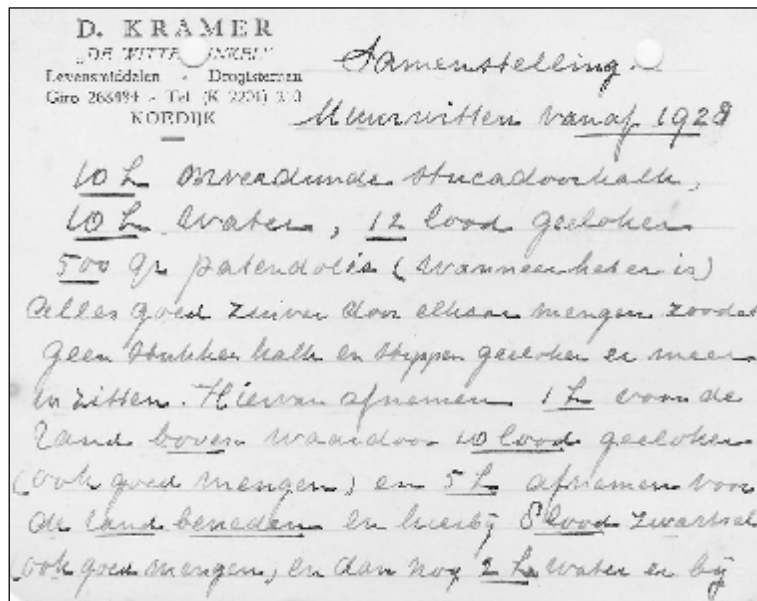 D. KRAMER
„DE WITTE WINKEL"
Levensmiddelen - Drogisterijen
Giro 266484 - Tel. (K 2204) 310
KOEDIJK
Samenstelling
Muurwitten vanaf 1928
10 L onverdunde stucadoorkalk,
10 L water, 12 lood geeloker
500 gr patendolis (wanneer het er is)
Alles goed zuiver door elkaar mengen zoodat
geen stukken kalk en stippen geeloker er meer
in zitten. Hiervan afnemen 1 L voor de
rand boven waardoor 10 lood geeloker
(ook goed mengen) en 5 L afnemen voor
de rand beneden en hierbij 8 lood zwartsel
(ook goed mengen) en dan nog 2 L water er bij